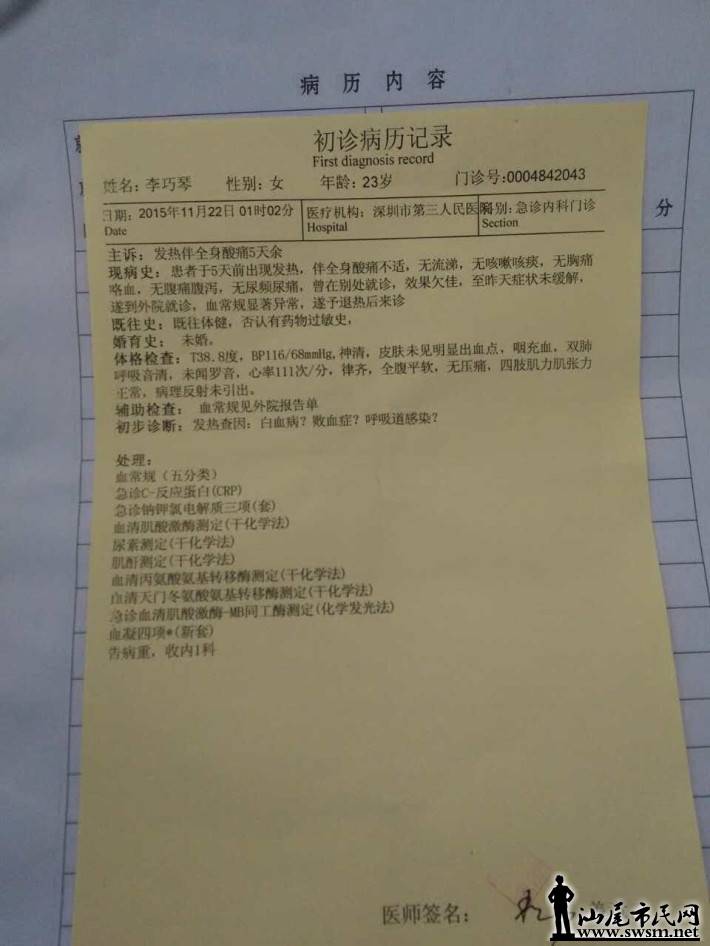 病 历 内 容
初诊病历记录
First diagnosis record
姓名: 李巧琴 性别: 女 年龄: 23岁 门诊号:0004842043
日期: 2015年11月22日 01时02分 医疗机构: 深圳市第三人民医院 科别: 急诊内科门诊
Date Hospital Section
分
主诉: 发热伴全身酸痛5天余
现病史: 患者于5天前出现发热, 伴全身酸痛不适, 无流涕, 无咳嗽咳痰, 无胸痛
咯血, 无腹痛腹泻, 无尿频尿痛, 曾在别处就诊, 效果欠佳, 至昨天症状未缓解,
遂到外院就诊, 血常规显著异常, 遂予退热后来诊
既往史: 既往体健, 否认有药物过敏史,
婚育史: 未婚。
体格检查: T38.8度, BP116/68mmHg, 神清, 皮肤未见明显出血点, 咽充血, 双肺
呼吸音清, 未闻罗音, 心率111次/分, 律齐, 全腹平软, 无压痛, 四肢肌力肌张力
正常, 病理反射未引出。
辅助检查: 血常规见外院报告单
初步诊断: 发热查因: 白血病? 败血症? 呼吸道感染?
处理:
血常规 (五分类)
急诊C-反应蛋白(CRP)
急诊钠钾氯电解质三项(套)
血清肌酸激酶测定(干化学法)
尿素测定(干化学法)
肌酐测定(干化学法)
血清丙氨酸氨基转移酶测定(干化学法)
血清天门冬氨酸氨基转移酶测定(干化学法)
急诊血清肌酸激酶-MB同工酶测定(化学发光法)
血凝四项*(新套)
告病重, 收内1科
医师签名:
汕尾市民网
www.swsm.net